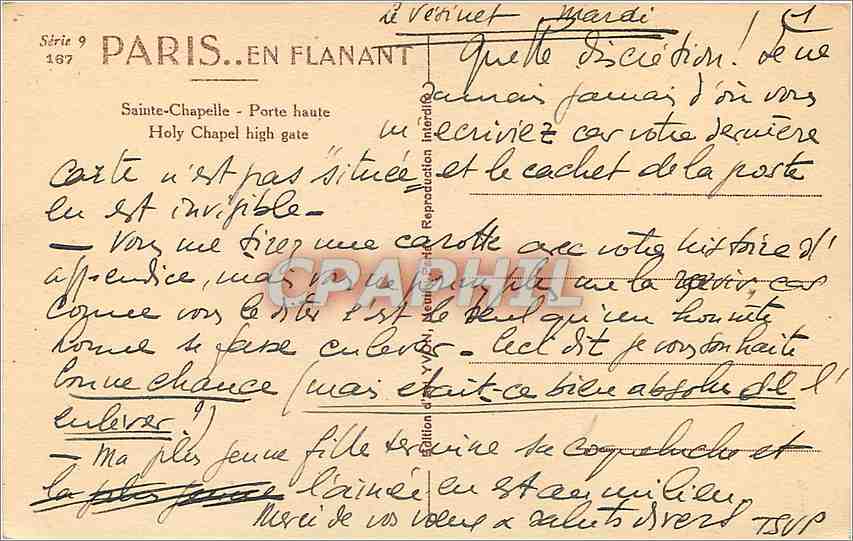 Le Vésinet Mardi
Série 9
167
PARIS..EN FLANANT
Sainte-Chapelle - Porte haute
Holy Chapel high gate
Edition d'Art YVON, Neuilly-Paris - Reproduction Interdite
Quelle discrétion! Je ne
jamais jamais d'où vous
m'écriviez car votre dernière
carte n'est pas "située" et le cachet de la poste
en est invisible -
- Vous me tirez une carotte avec votre histoire d'
appendice, mais vous ne pourrez plus me la car
comme vous le dites c'est le seul qu'un honnête
homme se fasse enlever - Ceci dit je vous souhaite
bonne chance (mais était-ce bien absolu de l'
enlever?)
- Ma plus jeune fille termine sa coqueluche et
la plus jeune l'ainée en est au milieu.
Merci de vos vœux & saluts divers TSVP
CPAPHIL